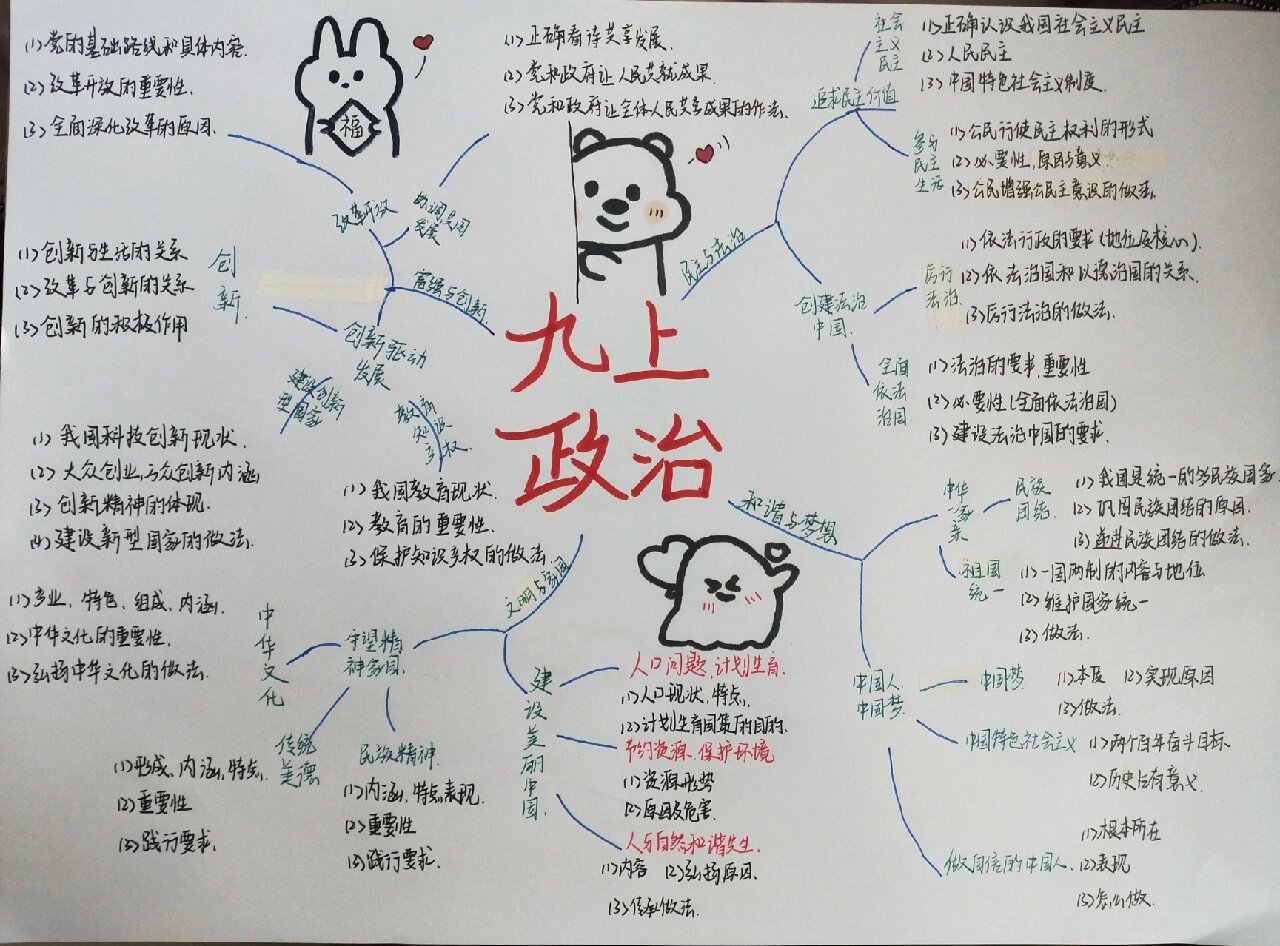 九上
政治
富强与创新
改革开放
(1)党的基础路线和具体内容
(2)改革开放的重要性.
(3)全面深化改革的原因.
福
协调共同
发展
(1)正确看待共享发展.
(2)党和政府让人民共就成果
(3)党和政府让全体人民共享成果的作法.
创新驱动
发展
创
新
(1)创新与生活的关系
(2)改革与创新的关系
(3)创新的积极作用
建设创新
型国家
(1)我国科技创新现状.
(2)大众创业,万众创新内涵
(3)创新精神的体现.
(4)建设新型国家的做法.
教育
知识
产权
(1)我国教育现状.
(2)教育的重要性.
(3)保护知识产权的做法.
民主与法治
追求民主价值
社会
主义
民主
(1)正确认识我国社会主义民主
(2)人民民主
(3)中国特色社会主义制度.
参与
民主
生活
(1)公民行使民主权利的形式
(2)必要性,原因与意义.
(3)公民增强公民主意识的做法.
创建法治
中国.
厉行
法治.
(1)依法行政的要求(地位及核心).
(2)依法治国和以德治国的关系.
(3)厉行法治的做法.
全面
依法
治国
(1)法治的要求,重要性
(2)必要性(全面依法治国)
(3)建设法治中国的要求.
文明与家园
守望精
神家园.
中
华
文
化
(1)产业、特色、组成、内涵.
(2)中华文化的重要性.
(3)弘扬中华文化的做法.
传统
美德
(1)形成、内涵,特点.
(2)重要性
(3)践行要求.
民族精神.
(1)内涵,特点表现.
(2)重要性
(3)践行要求.
建
设
美
丽
中
国.
人口问题,计划生育.
(1)人口现状,特点.
(2)计划生育国策的目的.
节约资源、保护环境
(1)资源形势
(2)原因及危害.
人与自然和谐共生.
(1)内容 (2)弘扬原因.
(3)传承做法.
和谐与梦想
中华
一家
亲
民族
团结.
(1)我国是统一的多民族国家.
(2)巩固民族团结的原因.
(3)递进民族团结的做法.
祖国
统一
(1)一国两制的内容与地位
(2)维护国家统一
(3)做法.
中国人.
中国梦.
中国梦.
(1)本质 (2)实现原因
(3)做法.
中国特色社会主义
(1)两个百年奋斗目标.
(2)历史占有意义.
做自信的中国人.
(1)根本所在
(2)表现
(3)怎么做.